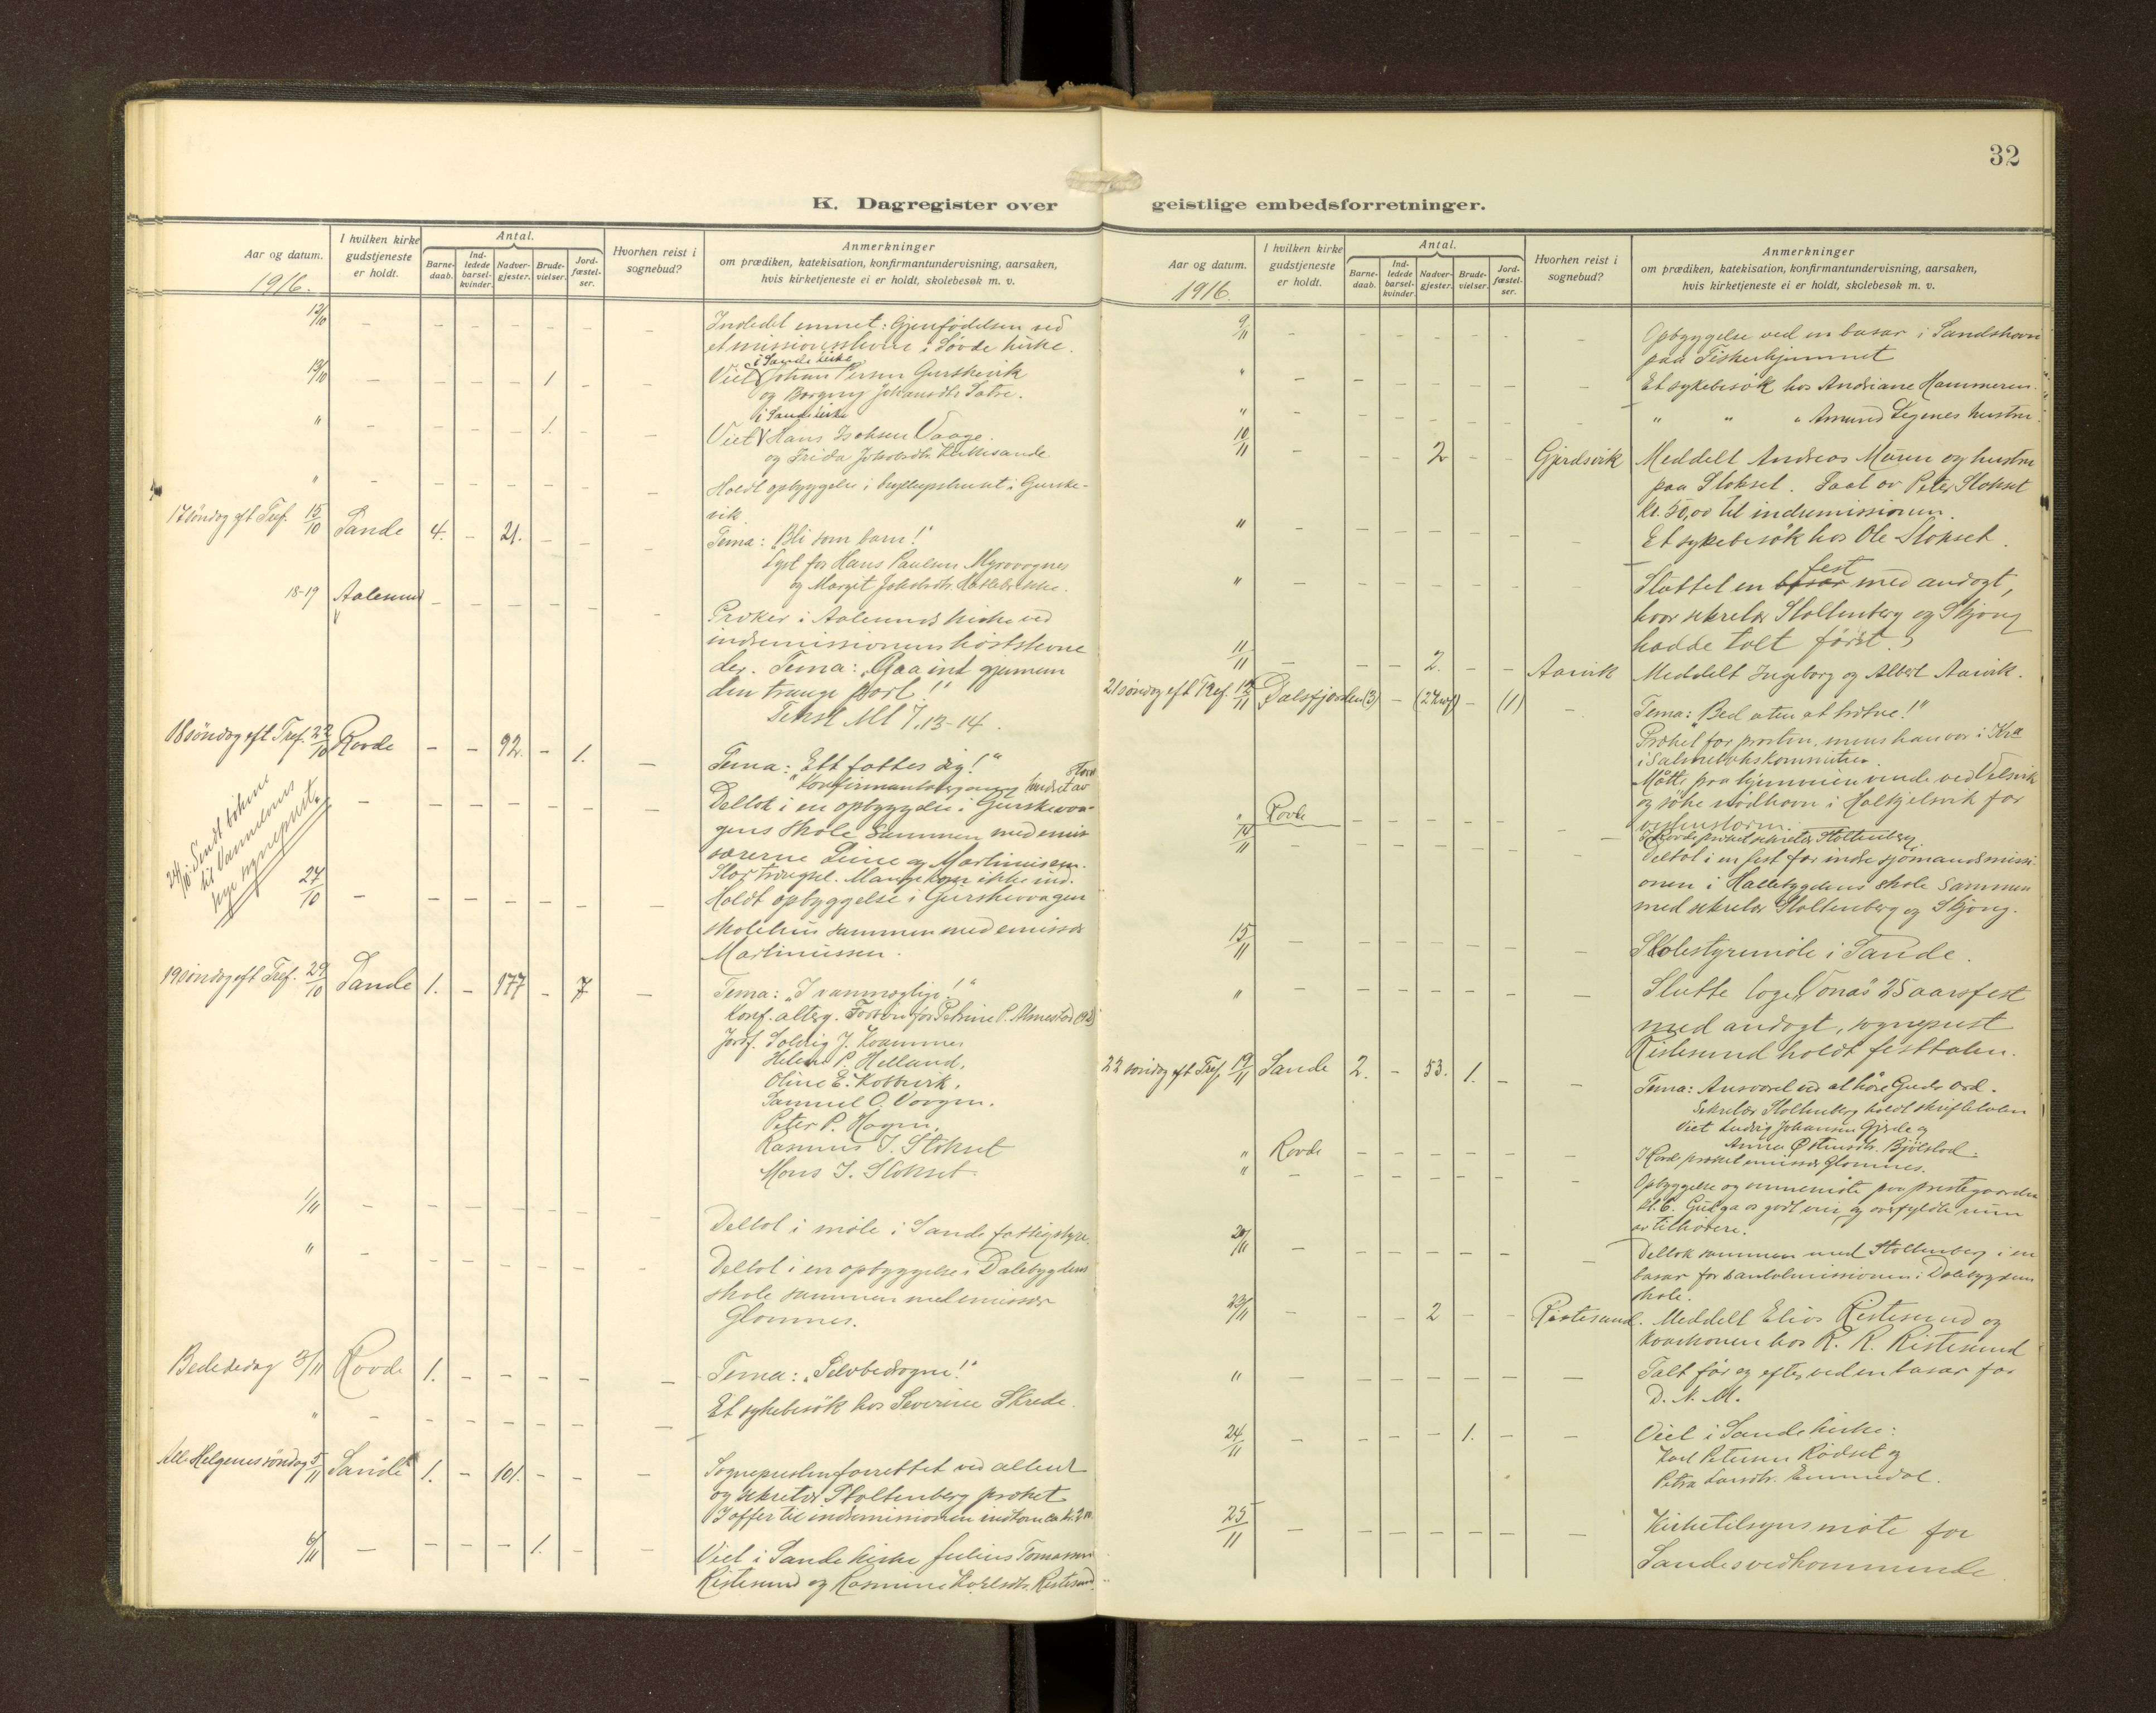 32
K. Dagregister over geistlige embedsforretninger.
Aar og datum.
1916.
I hvilken kirke gudstjeneste er holdt.
Antal.
Barnedaab.
Indledede barselkvinder.
Nadvergjester.
Brudevielser.
Jordfæstelser.
Hvorhen reist i sognebud?
Anmerkninger
om prædiken, katekisation, konfirmantundervisning, aarsaken,
hvis kirketjeneste ei er holdt, skolebesøk m. v.
Indledet emnet: Gjenfødelsen ved
et missionsstevne i Søvde kirke.
i Sande kirke
1 Viet Johan Persen Gurskevik
og Borgny Johansdtr. Sætre.
i Sande kirke
" 1. Viet Hans Isaksen Vaage
og Frida Jakobsdtr. Kirkesande
" Holdt opbyggelse i bryllupshuset i Gurske-
vik.
17 søndag eft Tref. 15/10 Sande 4. - 21. Tema: "Bli som barn!"
Lyst for Hans Paulsen Myrvognes
og Margit Jakobsdtr.
18-19 Aalesund Præker i Aalesunds kirke ved
indremissionens høststevne
der. Tema: "Gaa ind gjennem
den trange port!"
Tekst Mt 7, 13-14.
18 søndag eft Tref. 22/10 Rovde - - 92. - 1. Tema: "Ett fattes dig!"
Konfirmantaltergang hindret av storm
Deltok i en opbyggelse i Gurskevaa-
gens skole sammen med emis-
særerne Leine og Martinussen.
Stor trængsel. Mange kom ikke ind.
24/10: Sendt bøkene
til Vanylvens
nye sogneprest.
27/10 Holdt opbyggelse i Gurskevaagen
skolehus sammen med emissær
Martinussen.
19 søndag eft Tref. 29/10 Sande 1. - 177 - 7 Tema: "I vanmægtige!"
Konf. alterg. Forbøn for Petrine P. Almestad (92)
Jordf. Solveig J. Kvammen
Helene P. Helland,
Oline E. Kobbevik,
Samuel O. Vaagen.
Peter P. Hagen,
Rasmus J. Stokset
Mons J. Stokset.
1/11 Deltok i møte i Sande fattigstyre.
" Deltok i en opbyggelse i Dalebygdens
skole sammen med emissær
Glomnes.
Bededag 3/11 Rovde 1. Tema: "Selvbedragne!"
" Et sykebesøk hos Severine Skrede.
Alle Helgenes søndag 5/11 Sande 1. - 101. Sognepresten forrettet ved alteret
og sekretær Stoltenberg præket
I offer til indremissionen indkom ca kr.
6/11 1. Viet i Sande kirke Julius Tomassen
Ristesund og Rasmine Karlsdtr. Ristesund.
Aar og datum.
1916.
I hvilken kirke gudstjeneste er holdt.
Antal.
Barnedaab.
Indledede barselkvinder.
Nadvergjester.
Brudevielser.
Jordfæstelser.
Hvorhen reist i sognebud?
Anmerkninger
om prædiken, katekisation, konfirmantundervisning, aarsaken,
hvis kirketjeneste ei er holdt, skolebesøk m. v.
9/11 Opbyggelse ved en basar i Sandshavn
paa Fiskerhjemmet
" Et sykebesøk hos Andriane Hammeren.
" " " " Amund hustru.
10/11 2 Gjerdsvik Meddelt Andreas Maren og hustru
paa Stokset. Faat av Peter Stokset
kr. 50,00 til indremissionen.
" Et sykebesøk hos Ole Stokset.
" Sluttet en fest med andagt,
hvor sekretær Stoltenberg og Skjong
hadde talt først.
11/11 2. Aarvik Meddelt Ingeborg og Albert Aarvik.
21 søndag eft Tref. 12/11 Dalsfjorden (3) - (24 ) - (1) Tema: "Bed uten at trætne!"
Præket for prosten, mens han var i Kra
i Salmebokskommiteen.
Måtte paa hjemveien vende ved Velsvik
og søke nødhavn i Halkjelsvik for
veststorm.
" Rovde I Rovde præket sekretær Stoltenberg.
14/11 Deltok i en fest for indre sjømandsmissi-
onen i Hallebygdens skole sammen
med sekretær Stoltenberg og Skjong.
15/11 Skolestyremøte i Sande.
" Slutte loge "Vona"s 25 aarsfest
med andagt, sogneprest
Ristesund holdt festtalen.
22 søndag eft Tref. 19/11 Sande 2. - 53. 1. Tema: Ansvaret ved at høre Guds ord.
Sekretær Stoltenberg holdt skriftetalen
Viet Ludvig Johansen Gjerde og
Anna Østensdtr. Bjølstad.
" Rovde I Rovde præket emissær Glomnes.
" Opbyggelse og vennemøte paa prestegaarden
kl. 6. Gud ga os godt veir, og overfyldte rum
av tilhørere.
20/11 Deltok sammen med Stoltenberg i en
basar for Santalmissionen i Dalebygdens
skole.
23/11 2 Ristesund. Meddelt Elias Ristesund og
kaarkonen hos R. R. Ristesund
" Talt før og efter ved en basar for
D. N. M.
24/11 1. Viet i Sande kirke:
Karl Petersen Rødset og
Petra Larsdtr.
25/11 Kirketilsynsmøte for
Sandes vedkommende